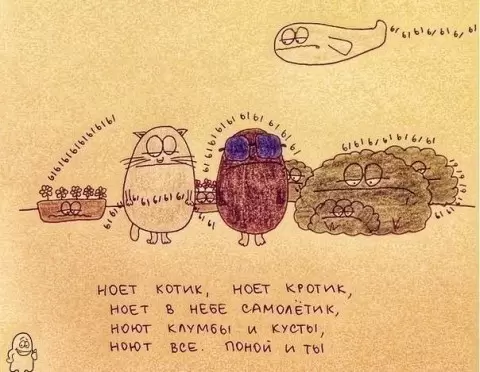 ы ы ы ы ы ы ы
ы ы ы ы ы ы ы ы ы
ы ы ы ы ы ы ы ы ы ы ы ы
ы ы ы ы ы ы ы
ы ы ы ы ы ы ы
НОЕТ КОТИК, НОЕТ КРОТИК,
НОЕТ В НЕБЕ САМОЛЁТИК,
НОЮТ КЛУМБЫ И КУСТЫ,
НОЮТ ВСЕ. ПОНОЙ И ТЫ